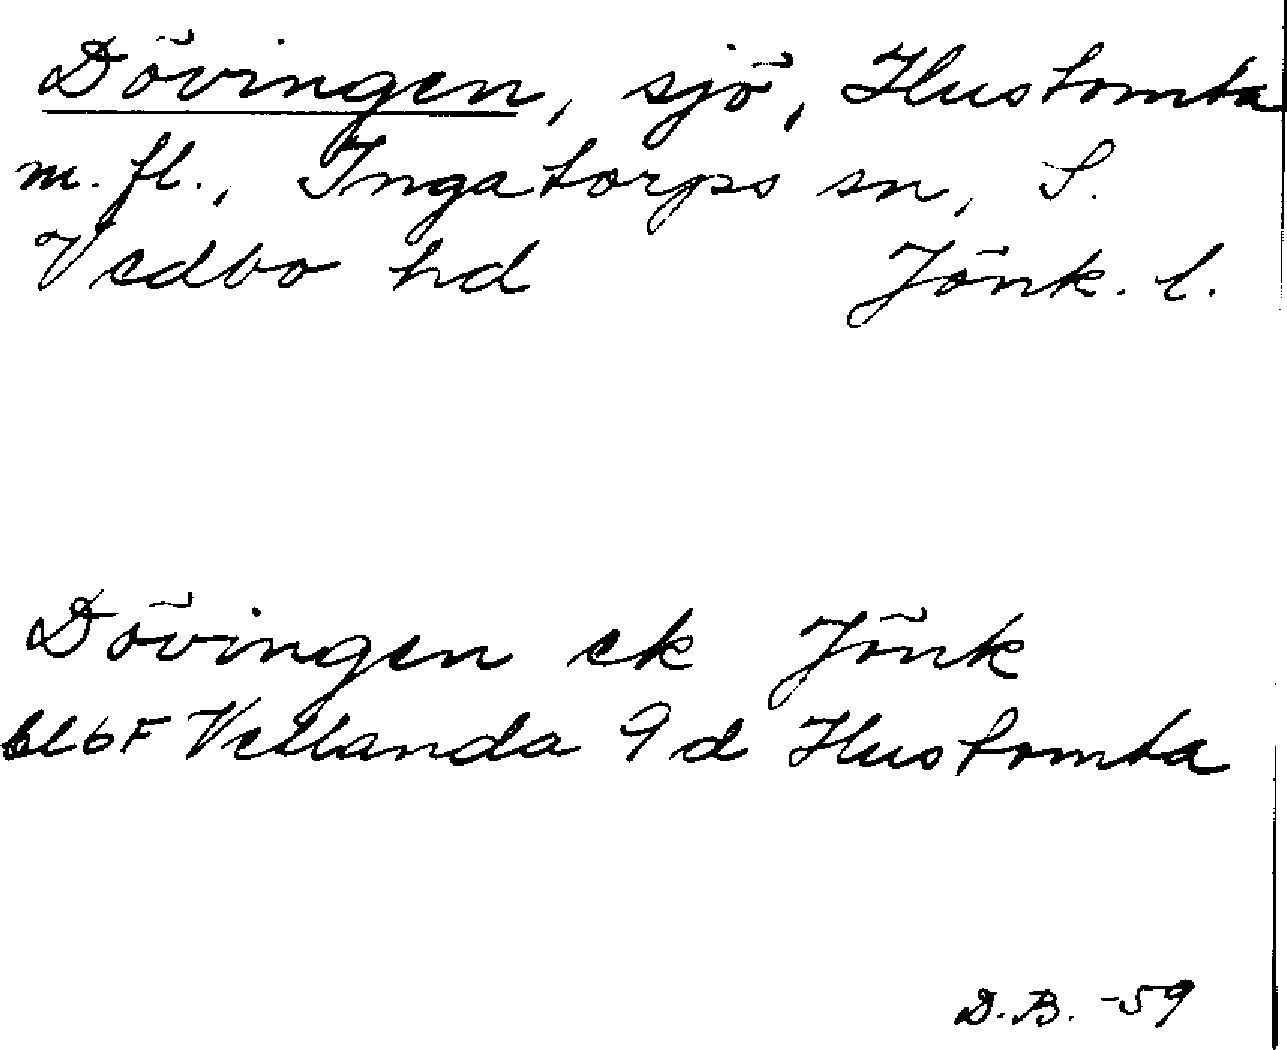 Dövingen, sjö, Hustomta
m. fl., Ingatorps sn, S.
Vedbo hd Jönk. l.
Dövingen ek Jönk
bl 6F Vetlanda 9d Hustomta
D.B. -59